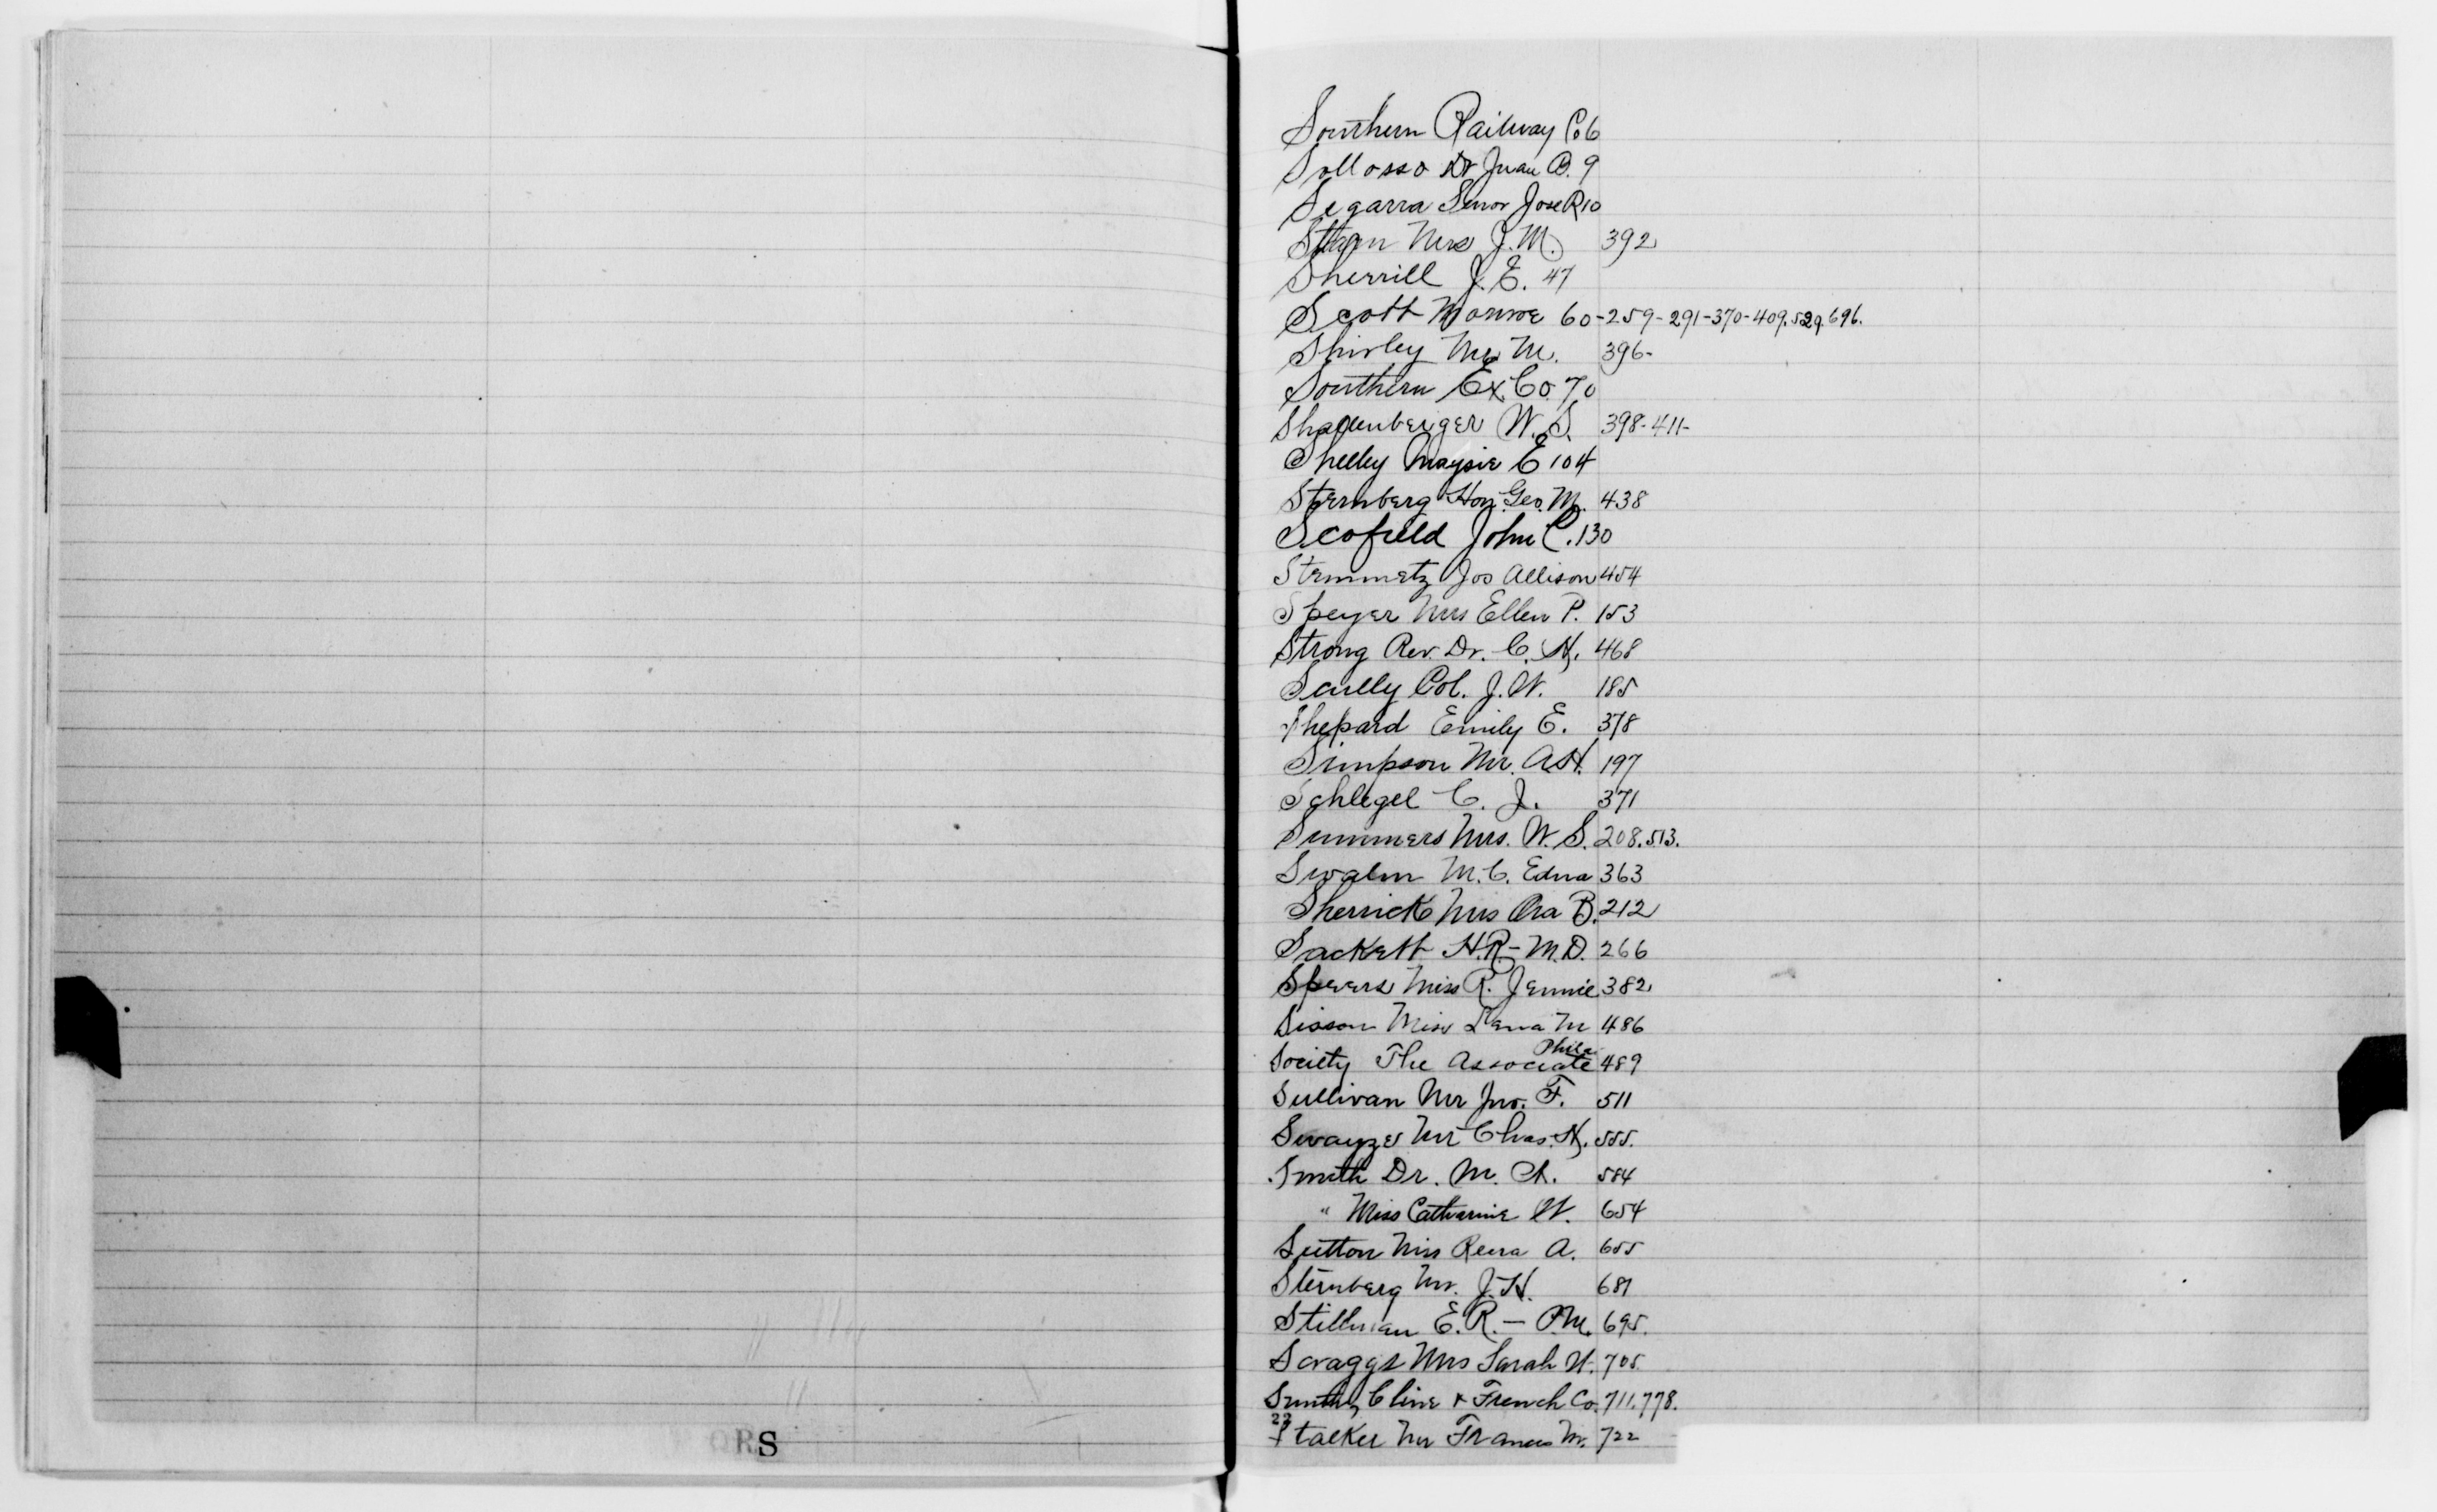 Southern Railway Co 6
Sollosso Dr Juan B. 9
Segarra Senor Jose R 10
Mrs J. M. 392
Sherrill J. E. 47
Scott Monroe 60-259-291-370-409.529.696.
Shirley M. 396-
Southern Ex. Co. 70
Shallenberger W. S. 398-411-
Shelby Maysie E 104
Sternberg Hon. Geo. M. 438
Scofield John C. 130
Steinmetz Jos Allison 454
Speyer Mrs Ellen P. 153
Strong Rev. Dr. C. H. 468
Scully Col. J. W. 185
Shepard Emily E. 378
Simpson Mr. A.H. 197
Schlegel C. J. 371
Summers Mrs. W. S. 208.513.
Swalm M. C. Edna 363
Sherrick Mrs Ora B. 212
Sackett H.R- M.D. 266
Speers Miss R. Jennie 382
Sisson Miss Lena M 486
Society The Associate Phila 489
Sullivan Mr Jno. F. 511
Swayze Mr Chas. H. 555.
Smith Dr. M. A. 584
" Miss Catharine W. 654
Sutton Miss Reera A. 655
Sternberg Mr. J. H. 681
Stillman E. R. — P.M. 695.
Scraggs Mrs Sarah W. 705
Smith, Cline & French Co. 711.778.
22
Stalker Mr Francis M. 722
QRS